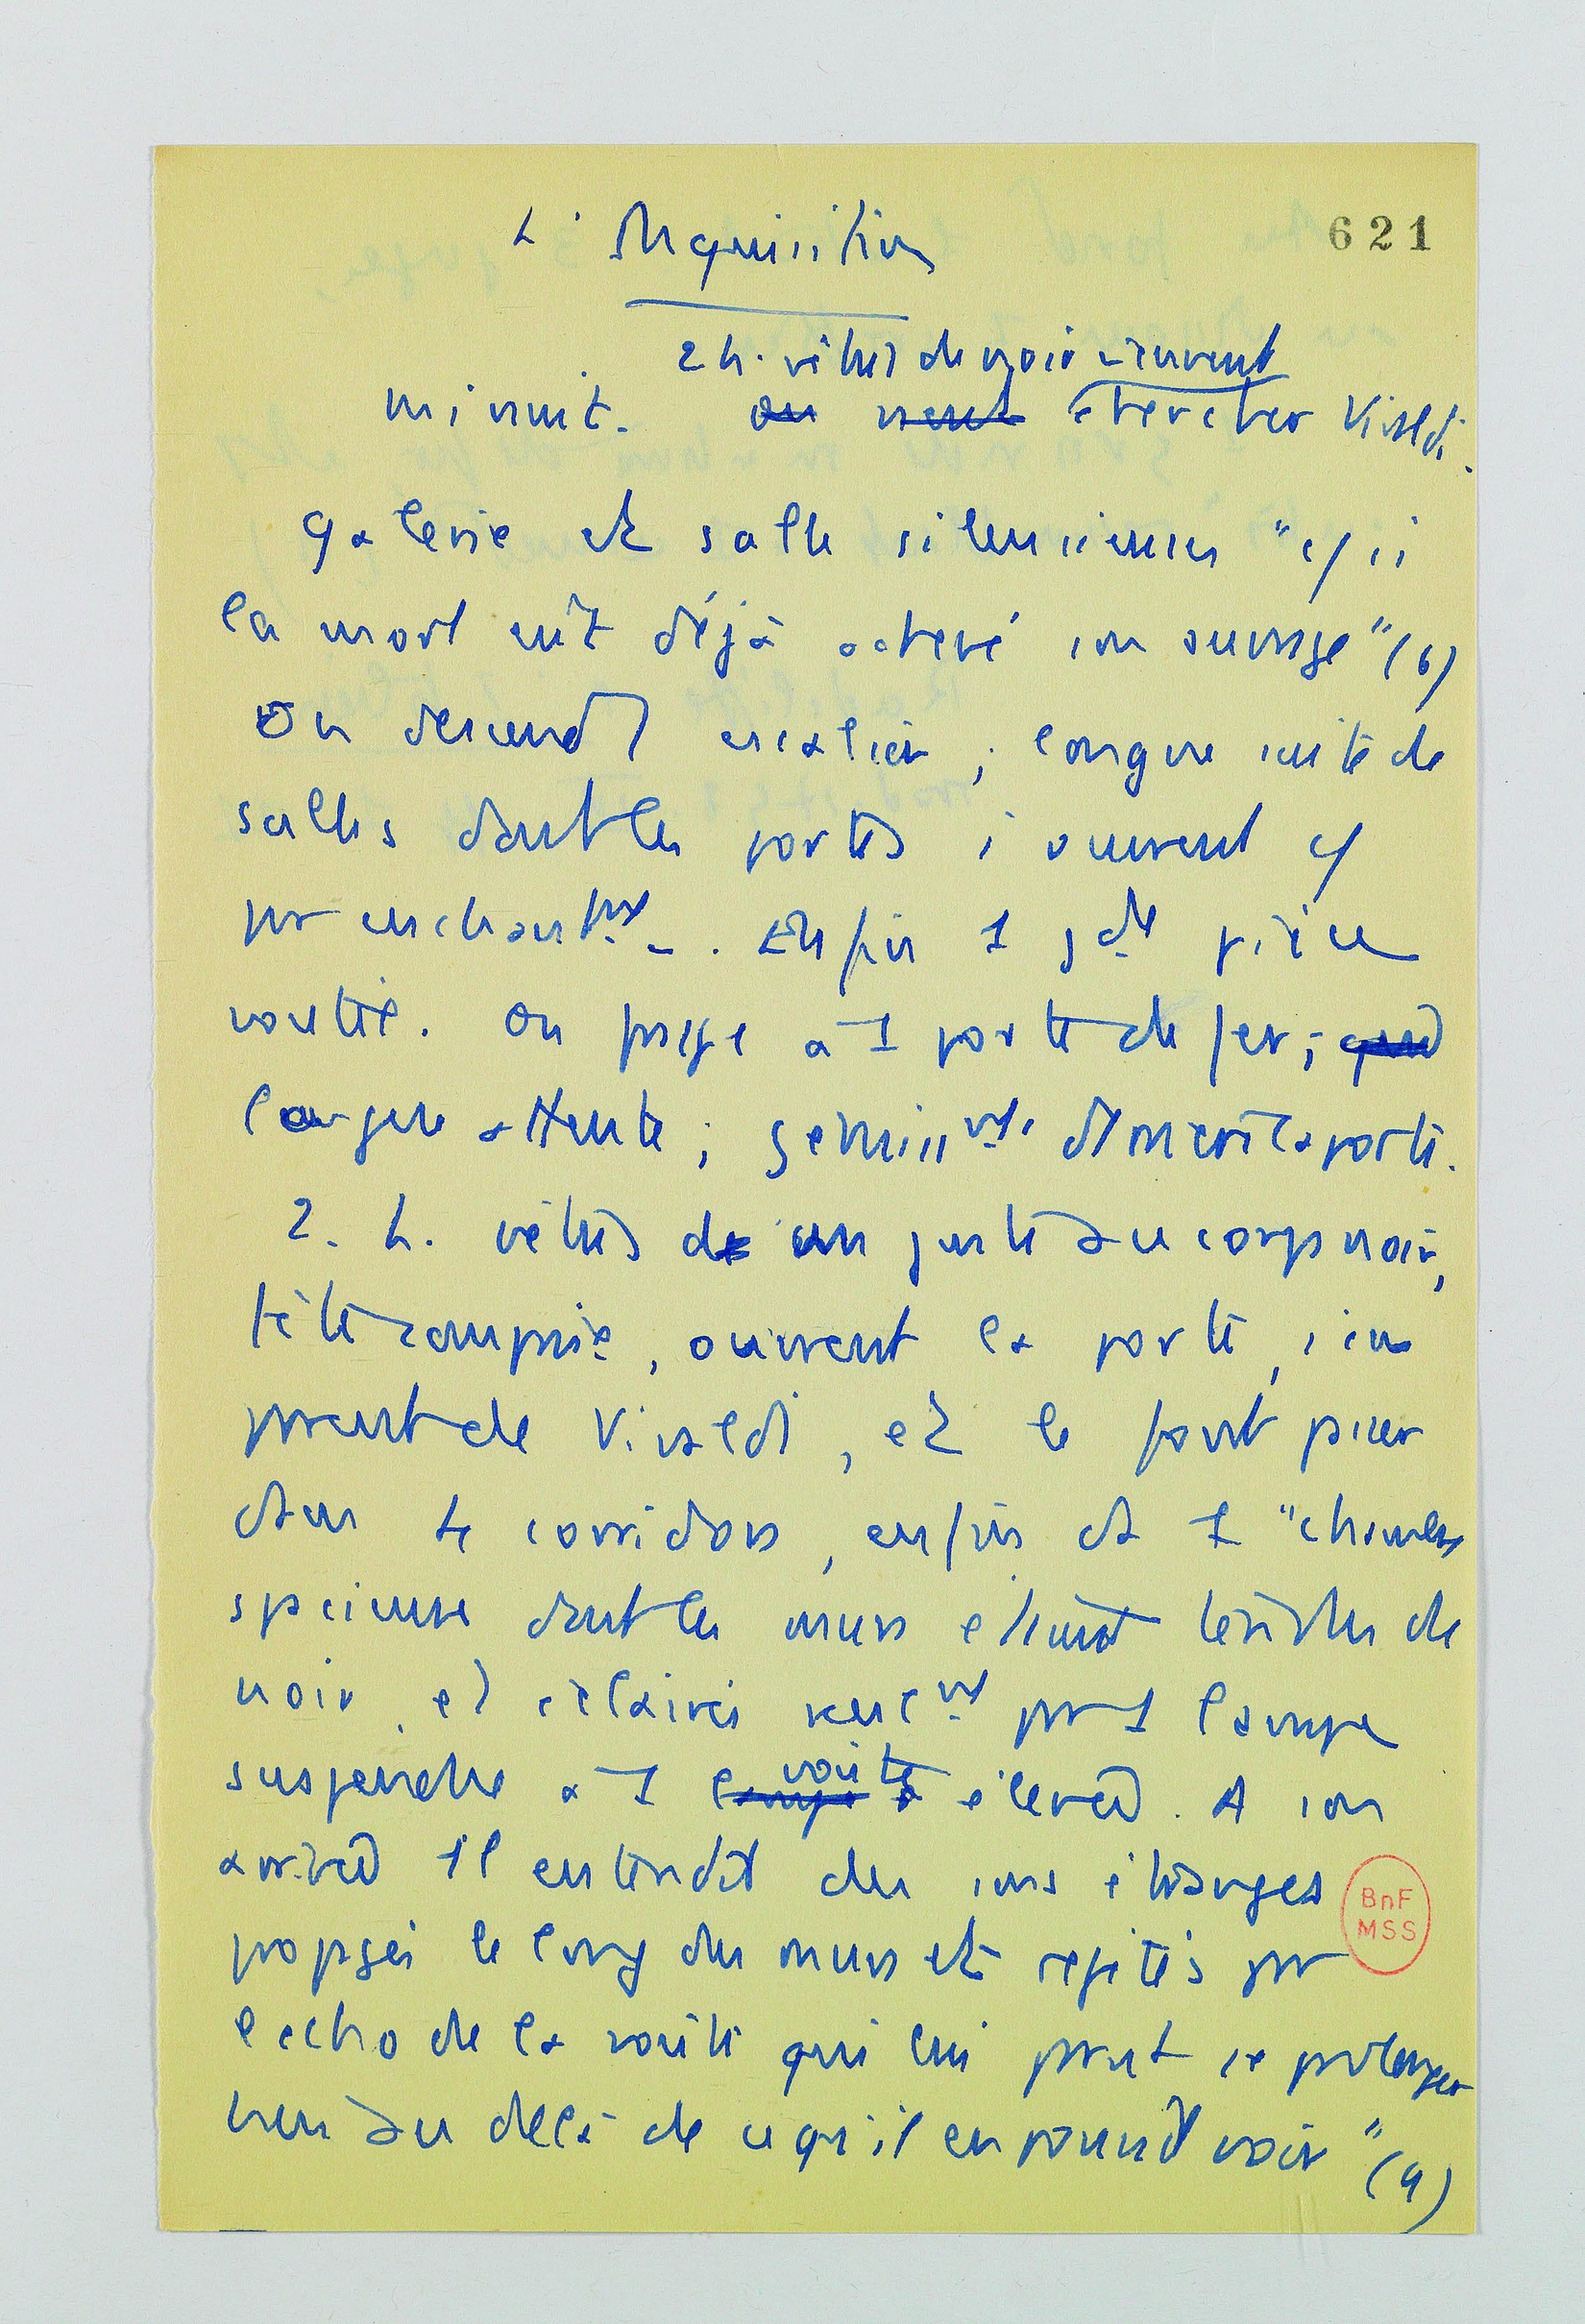 L'Inquisition
621
2 h. vêtus de noir viennent
minuit. on vient chercher Vivaldi.
Galerie et salle silencieuses "c/ si
la mort eût déjà achevé son ouvrage" (6)
On descend escalier ; longue suite de
salles dont les portes s'ouvrent c/
par enchantmt. Enfin 1 gde pièce
voutée. On frappe à 1 porte de fer ;
longue attente ; gemissmts derrière la porte.
2. h. vêtus de juste au corps noir,
ouvrent la porte, s'em
parent de Vivaldi, et le font passer
dans corridors, enfin ds 1 "chambre
spacieuse dont les murs étaient tendus de
noir, et éclairés seulmt par 1 lampe
suspendue à 1 lampe voute élevée. A son
arrivée il entendit des sons étranges
propagés le long des murs et répétés par
l'echo de la voute qui lui parut se prolonger
bien au delà de ce qu'il en pouvait voir" (9)
BnF
MSS